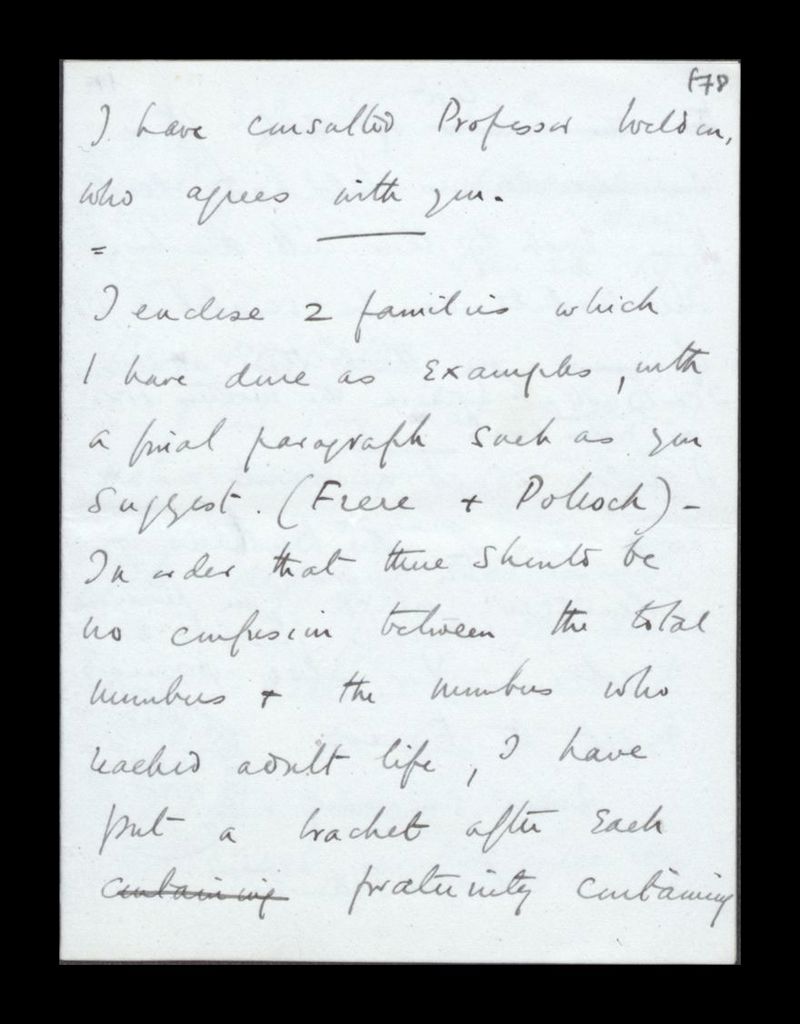 f78
I have consulted Professor Weldon,
who agrees with you.
=
I enclose 2 families which
I have done as Examples, with
a final paragraph such as you
suggest. (Frere + Pollock) -
In order that there should be
no confusion between the total
numbers + the numbers who
reached adult life, I have
put a bracket after each
containing fraternity containing